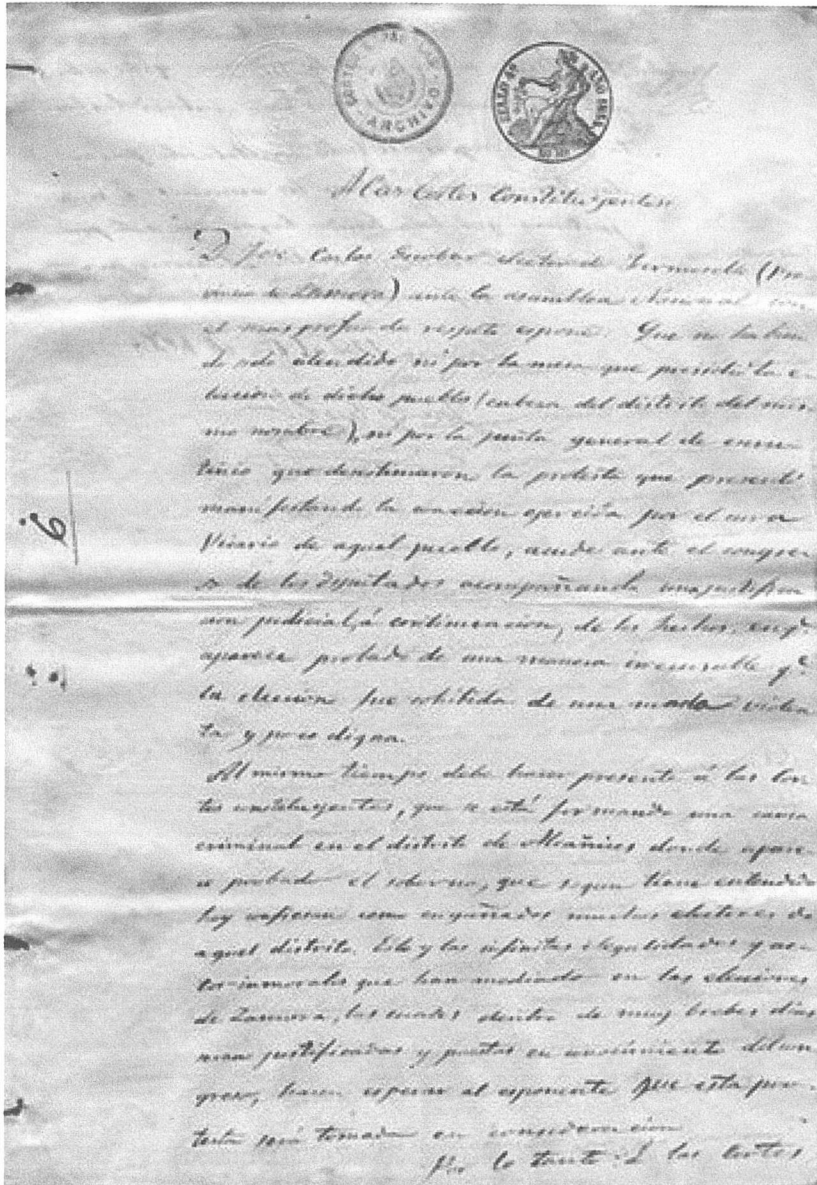 ARCHIVO
SELLO 4º
A las Cortes Constituyentes
D. José Carlos Escobar elector de Fermoselle (Pro-
vincia de Zamora) ante la asamblea Nacional con
el mas profundo respeto espone: Que no habien
do sido atendido ni por la mesa que presidió la e-
leccion de dicho pueblo (cabeza del distrito del mis-
mo nombre), ni por la junta general de escru-
tinio que desestimaron la protesta que presentó
manifestando la coaccion ejercida por el cura
Vicario de aquel pueblo, acude ante el congre
so de los Diputados acompañando una justifica
cion judicial, á continuacion, de los hechos, en q.e
aparece probado de una manera q.e
la eleccion fue cohibida de una mada violen
ta y poco digna.
Al mismo tiempo debe hacer presente á las Cor-
tes constituyentes, que se está formando una causa
criminal en el distrito de Alcañices donde apare-
ce probado el soborno, que segun tiene entendido
hoy confiesan como engañados muchos electores de
aquel distrito. Esto y las infinitas ilegalidades y ac-
tos inmorales que han mediado en las elecciones
de Zamora, las cuales dentro de muy breves dias
seran justificadas y puestas en conocimiento del con
greso, hacen esperar al esponente que esta pro-
testa será tomada en consideracion
Por lo tanto: A las Cortes
6